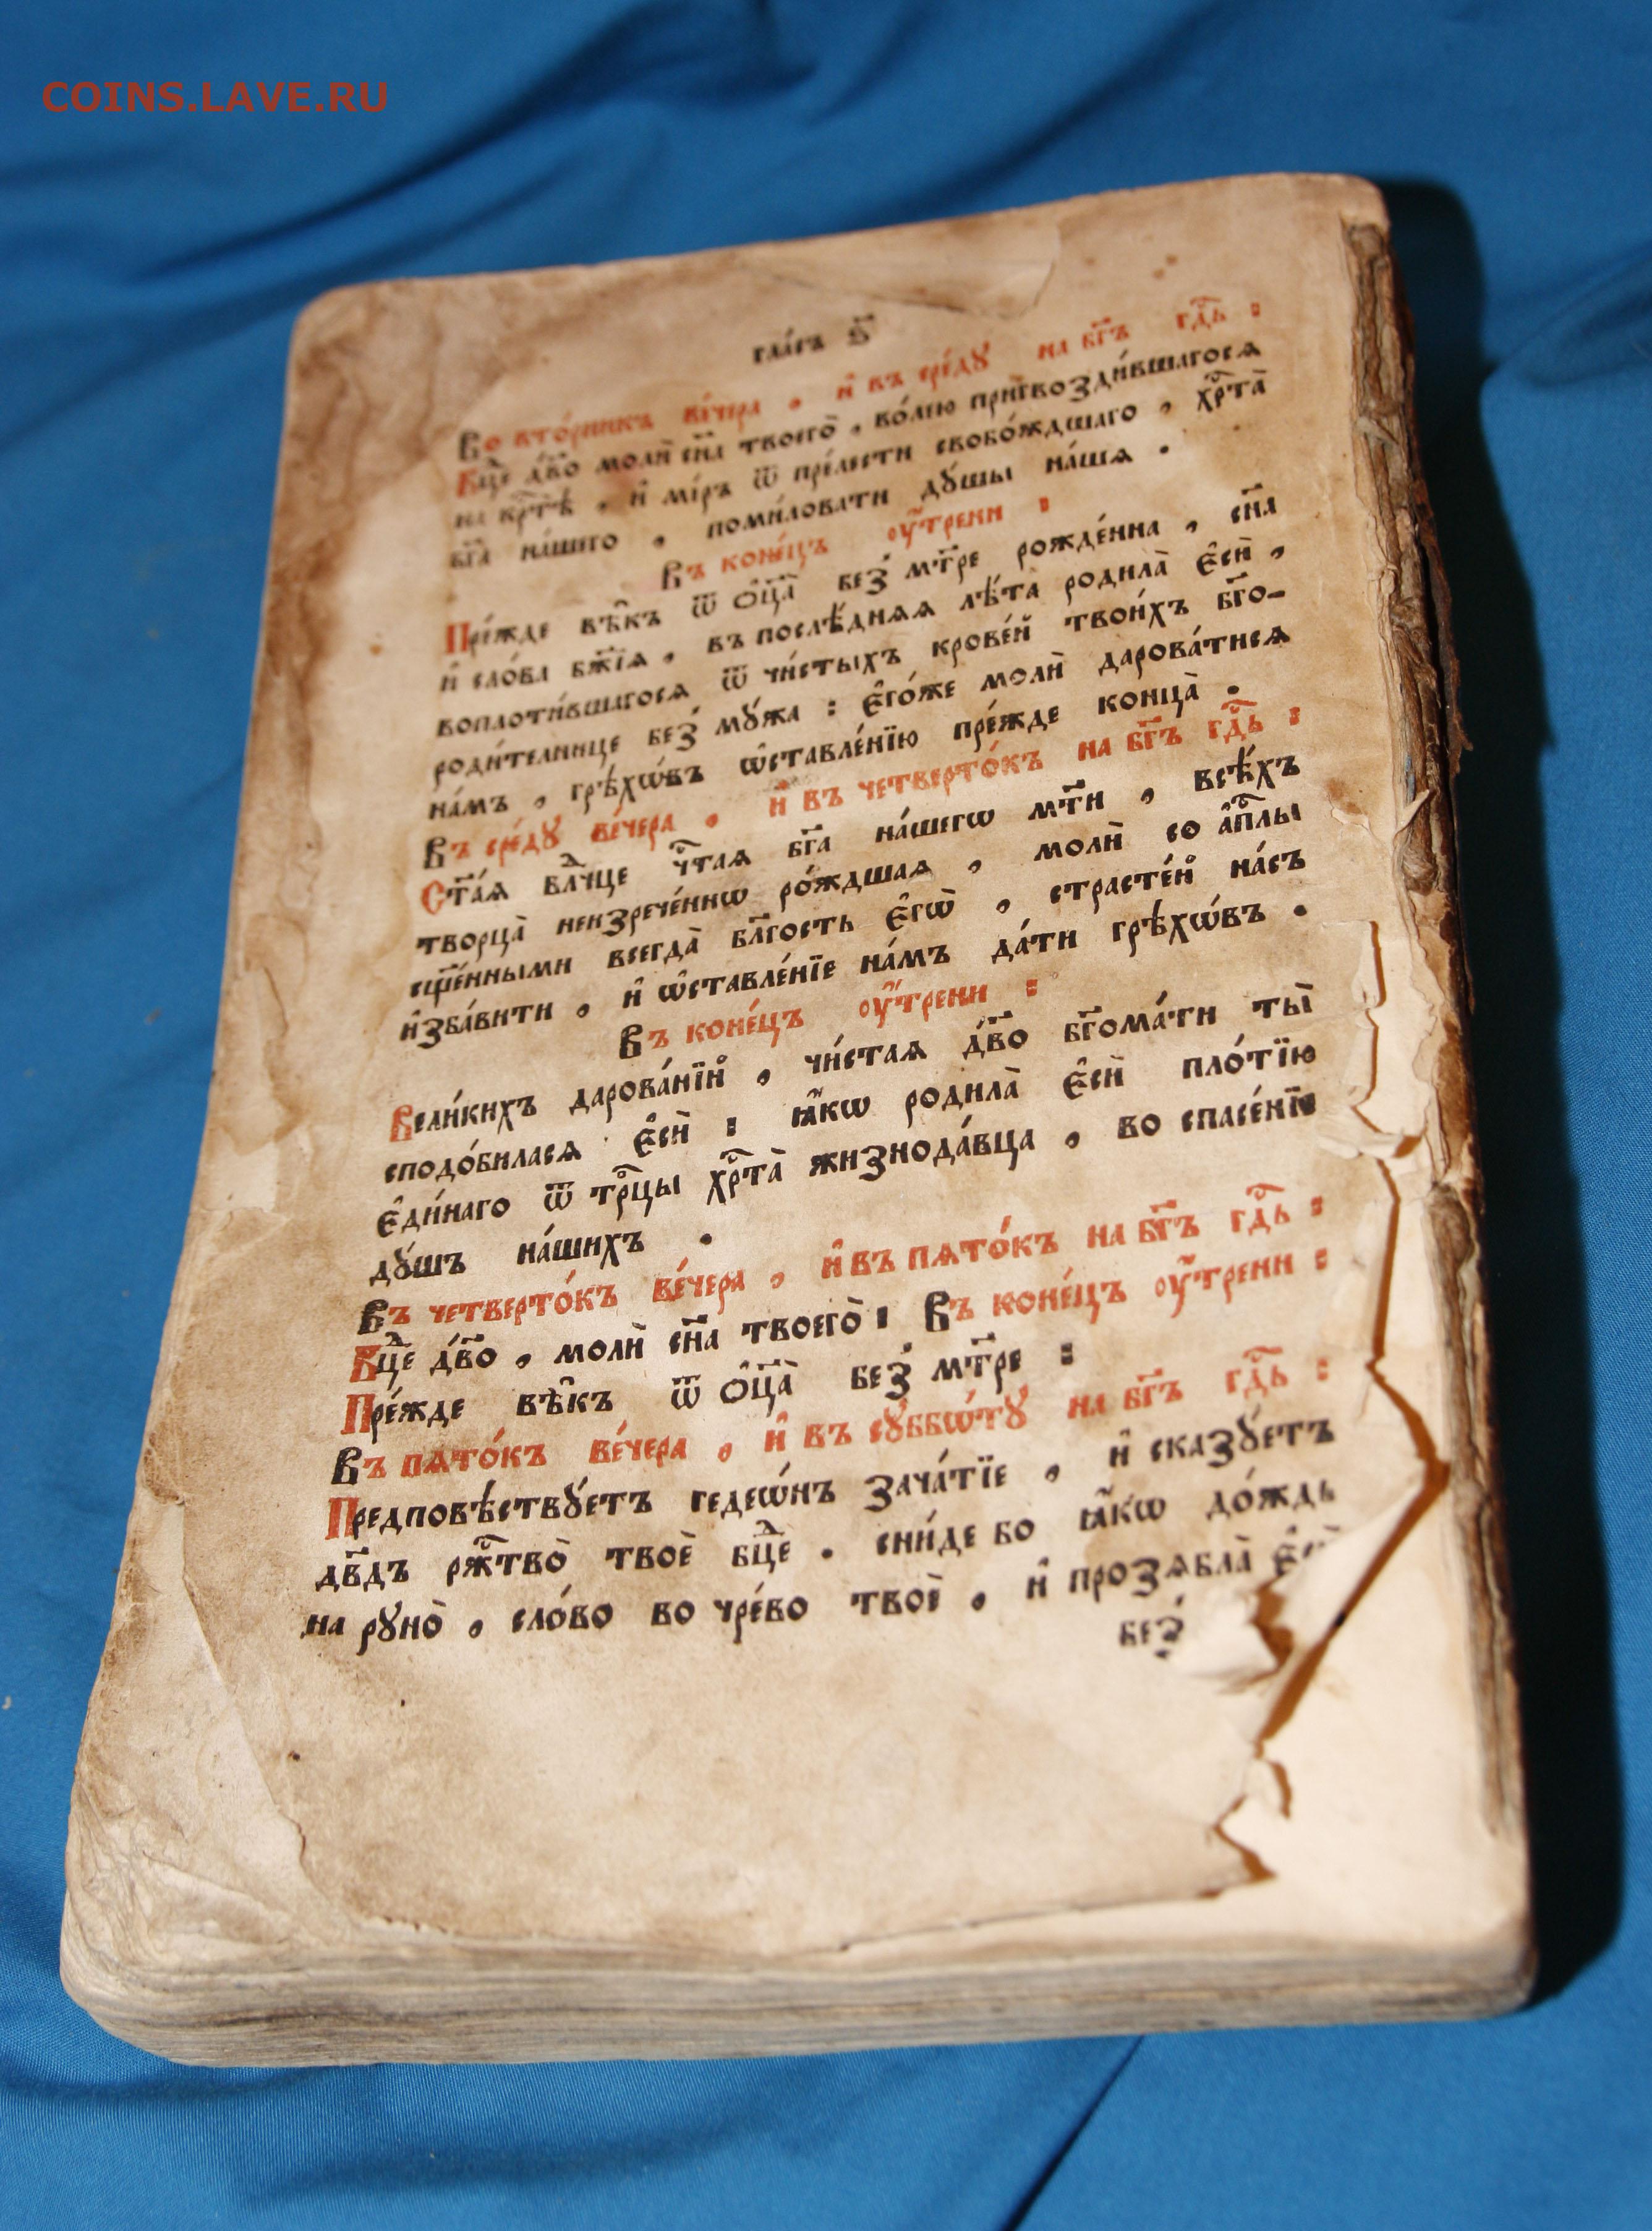 COINS.LAVE.RU
гла́съ в҃
Во вто́рникъ ве́чера , и҆ въ сре́дꙋ на бг҃ъ гдⷭ҇ь :
Бцⷣе дв҃о молѝ сн҃а твоего̀ , во́лею пригвозди́вшагося
на крⷭ҇тѣ , и҆ мі́ръ ѿ пре́лести свобо́ждшаго , хрⷭ҇та̀
бг҃а на́шего , поми́ловати дꙋ́шы на́шѧ .
Въ коне́цъ оу҆́трени :
Пре́жде вѣ̑къ ѿ ѻ҆ц҃а̀ беꙁ̾ мт҃ре рожде́нна , сн҃а
и҆ сло́ва бж҃їѧ , въ послѣ́днѧѧ лѣ̑та родила̀ є҆сѝ ,
воплоти́вшагосѧ ѿ чи́стыхъ крове́й твои́хъ бг҃о-
роди́тельнице беꙁ̾ мꙋ́жа : є҆го́же молѝ дарова́тисѧ
на́мъ , грѣхѡ́въ ѡ҆ставле́нїю пре́жде конца̀ .
Въ сре́дꙋ ве́чера , и҆ въ четверто́къ на бг҃ъ гдⷭ҇ь :
Ст҃а́ѧ влⷣчце чⷭ҇таѧ бг҃а на́шегѡ мт҃и , всѣ́хъ
творца̀ неиꙁрече́ннѡ ро́ждшаѧ , молѝ со а҆пⷭ҇лы
сщ҃е́нными всегда̀ бл҃гость є҆гѡ̀ , страсте́й на́съ
и҆ꙁба́вити , и҆ ѡ҆ставле́нїе на́мъ да́ти грѣхѡ́въ .
Въ коне́цъ оу҆́трени :
Вели́кихъ дарова́нїй , чи́стаѧ дв҃о бг҃ома́ти ты̀
сподо́биласѧ є҆сѝ : ꙗ҆́кѡ родила̀ є҆сѝ пло́тїю
є҆ди́наго ѿ трⷪ҇цы хрⷭ҇та̀ жиꙁнода́вца , во спасе́нїе
дꙋ́шъ на́шихъ .
Въ четверто́къ ве́чера , и҆ въ пѧто́къ на бг҃ъ гдⷭ҇ь :
Бцⷣе дв҃о , молѝ сн҃а твоего̀ : Въ коне́цъ оу҆́трени :
Пре́жде вѣ̑къ ѿ ѻ҆ц҃а̀ беꙁ̾ мт҃ре :
Въ пѧто́къ ве́чера , и҆ въ сꙋббѡ́тꙋ на бг҃ъ гдⷭ҇ь :
Предповѣ́ствꙋетъ гедеѡ́нъ ꙁача́тїе , и҆ скаꙁꙋ́етъ
дв҃дъ ржⷭ҇тво̀ твоѐ бцⷣе . сни́де бо ꙗ҆́кѡ до́ждь
на рꙋно̀ , сло́во во чре́во твоѐ , и҆ проꙁѧбла̀ є҆сѝ
беꙁ̾